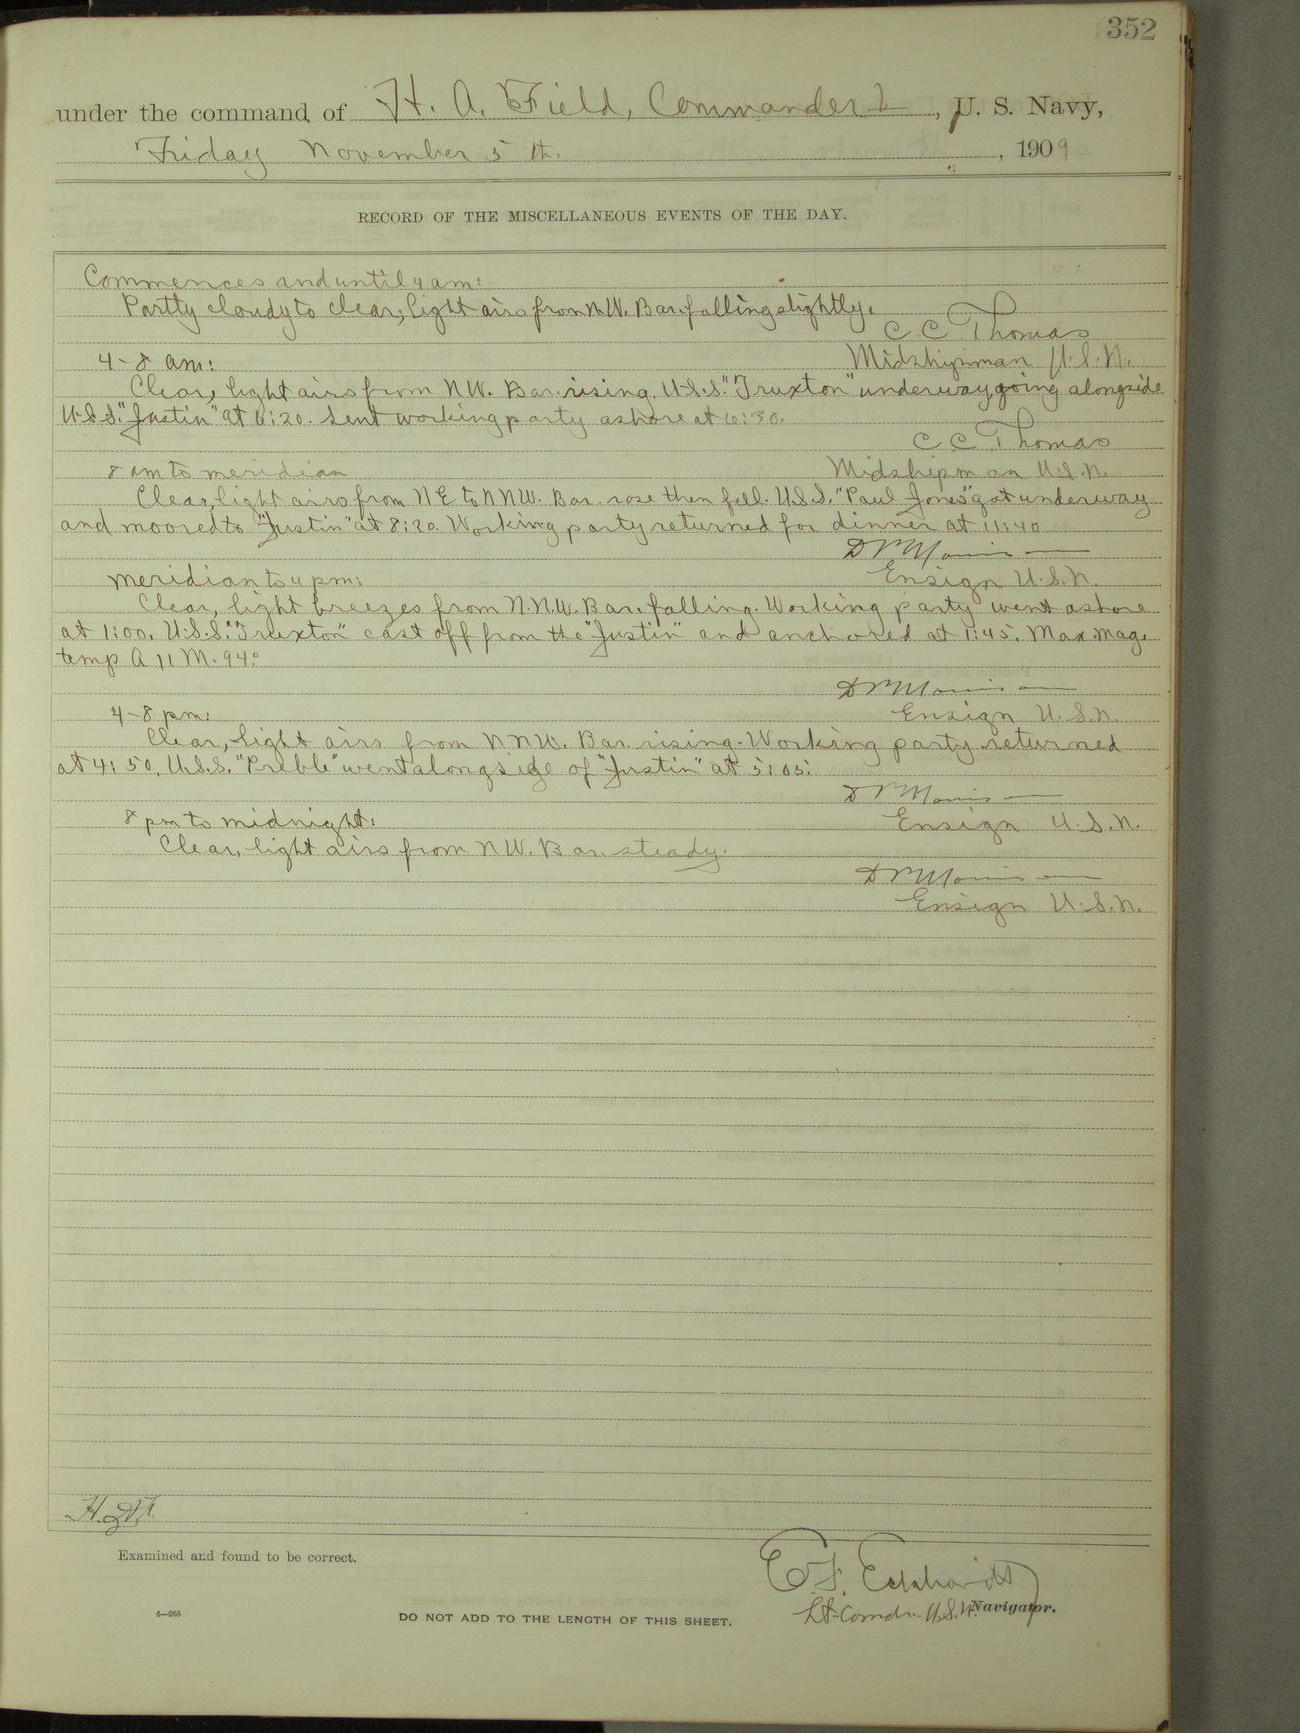 352
under the command of H. A. Field, Commander, U. S. Navy,
Friday November 5th. , 1909
RECORD OF THE MISCELLANEOUS EVENTS OF THE DAY.
Commences and until 4 am:
Partly cloudy to clear, light airs from NW. Bar. falling slightly.
C C Thomas
4-8 am:
Midshipman U.S.N.
Clear, light airs from NW. Bar. rising. U.S.S. "Truxton" underway, going alongside
U.S.S. "Justin" at 6:20. Sent working party ashore at 6:30.
C C Thomas
8 am to meridian
Midshipman U.S.N.
Clear, light airs from NE to NNW. Bar. rose then fell. U.S.S. "Paul Jones" got underway
and moored to "Justin" at 8:20. Working party returned for dinner at 11:40
Meridian to 4 pm:
Ensign U.S.N.
Clear, light breezes from N.N.W. Bar. falling. Working party went ashore
at 1:00. U.S.S. "Truxton" cast off from the "Justin" and anchored at 1:45. Max. Mag.
temp A 11 M. 94°
4-8 pm:
Ensign U.S.N.
Clear, light airs from NNW. Bar. rising. Working party returned
at 4:50. U.S.S. "Preble" went alongside of "Justin" at 5:05.
8 pm to midnight:
Ensign U.S.N.
Clear, light airs from NW. Bar. steady.
Ensign U.S.N.
Examined and found to be correct.
E. F. Eckhardt
Lt-Comdr. U.S.N. Navigator.
4—265
DO NOT ADD TO THE LENGTH OF THIS SHEET.